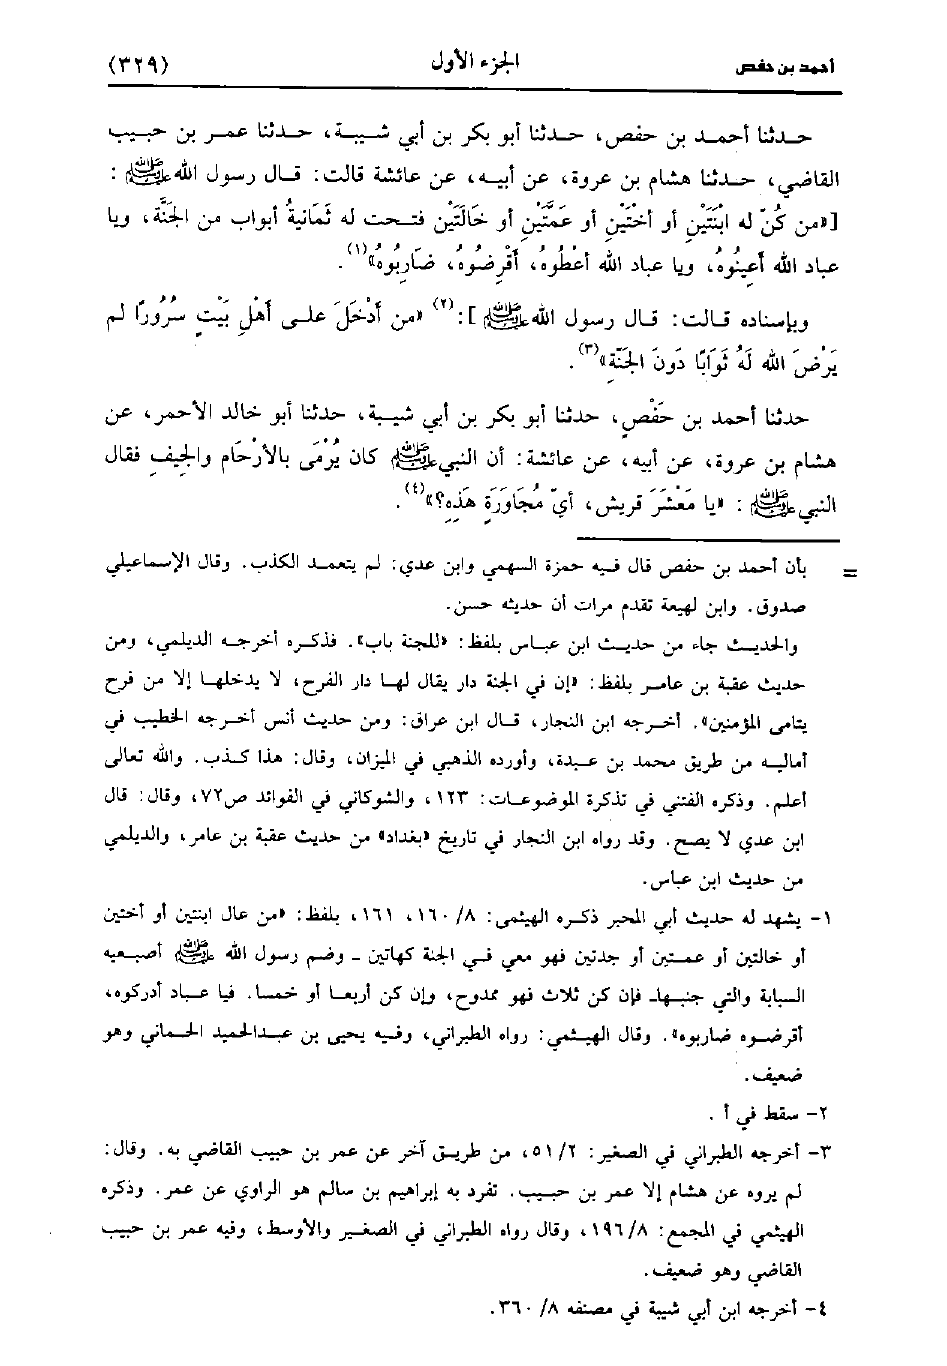 أحمد بن حفص الجزء الأول (٣٢٩)
حدثنا أحمد بن حفص، حدثنا أبو بكر بن أبي شيبة، حدثنا عمر بن حبيب
القاضي، حدثنا هشام بن عروة، عن أبيه، عن عائشة قالت: قال رسول الله ﷺ :
[«من كُنّ له ابْنَتَيْنِ أو أختَيْنِ أو عَمَّتَيْنِ أو خَالَتَيْنِ فتحت له ثَمَانيةُ أبواب من الجَنَّة، ويا
عباد الله أعينُوهُ، ويا عباد الله أعْطُوهُ، أقْرِضُوهُ، ضَارِبُوه»(١).
وبإسناده قالت: قال رسول الله ﷺ ]:(٢) «من أَدْخَلَ على أهْلِ بَيْتٍ سُرُورًا لم
يَرْضَ الله لَهُ ثَوَابًا دُونَ الجَنَّةِ»(٣).
حدثنا أحمد بن حَفْصٍ، حدثنا أبو بكر بن أبي شيبة، حدثنا أبو خالد الأحمر، عن
هشام بن عروة، عن أبيه، عن عائشة: أن النبي ﷺ كان يُرْمَى بالأرْحَام والجِيفِ فقال
النبي ﷺ : «يا مَعْشَرَ قريش، أيّ مُجَاوَرَةٍ هَذِهِ؟»(٤).
= بأن أحمد بن حفص قال فيه حمزة السهمي وابن عدي: لم يتعمد الكذب. وقال الإسماعيلي
صدوق. وابن لهيعة تقدم مرات أن حديثه حسن.
والحديث جاء من حديث ابن عباس بلفظ: «للجنة باب». فذكره أخرجه الديلمي، ومن
حديث عقبة بن عامر بلفظ: «إن في الجنة دار يقال لها دار الفرح، لا يدخلها إلا من فرح
يتامى المؤمنين». أخرجه ابن النجار، قال ابن عراق: ومن حديث أنس أخرجه الخطيب في
أماليه من طريق محمد بن عبدة، وأورده الذهبي في الميزان، وقال: هذا كذب. والله تعالى
أعلم. وذكره الفتني في تذكرة الموضوعات: ١٢٣، والشوكاني في الفوائد ص٧٢، وقال: قال
ابن عدي لا يصح. وقد رواه ابن النجار في تاريخ «بغداد» من حديث عقبة بن عامر، والديلمي
من حديث ابن عباس.
١- يشهد له حديث أبي المحبر ذكره الهيثمي: ٨/ ١٦٠، ١٦١، بلفظ: «من عال ابنتين أو أختين
أو خالتين أو عمتين أو جدتين فهو معي في الجنة كهاتين ـ وضم رسول الله ﷺ أصبعيه
السبابة والتي جنبها ـ فإن كن ثلاث فهو ممدوح، وإن كن أربعا أو خمسا. فيا عباد أدركوه،
أقرضوه ضاربوه». وقال الهيثمي: رواه الطبراني، وفيه يحيى بن عبدالحميد الحماني وهو
ضعيف.
٢- سقط في أ .
٣- أخرجه الطبراني في الصغير: ٢/ ٥١، من طريق آخر عن عمر بن حبيب القاضي به. وقال:
لم يروه عن هشام إلا عمر بن حبيب. تفرد به إبراهيم بن سالم هو الراوي عن عمر. وذكره
الهيثمي في المجمع: ٨/ ١٩٦، وقال رواه الطبراني في الصغير والأوسط، وفيه عمر بن حبيب
القاضي وهو ضعيف.
٤- أخرجه ابن أبي شيبة في مصنفه ٨/ ٣٦٠.